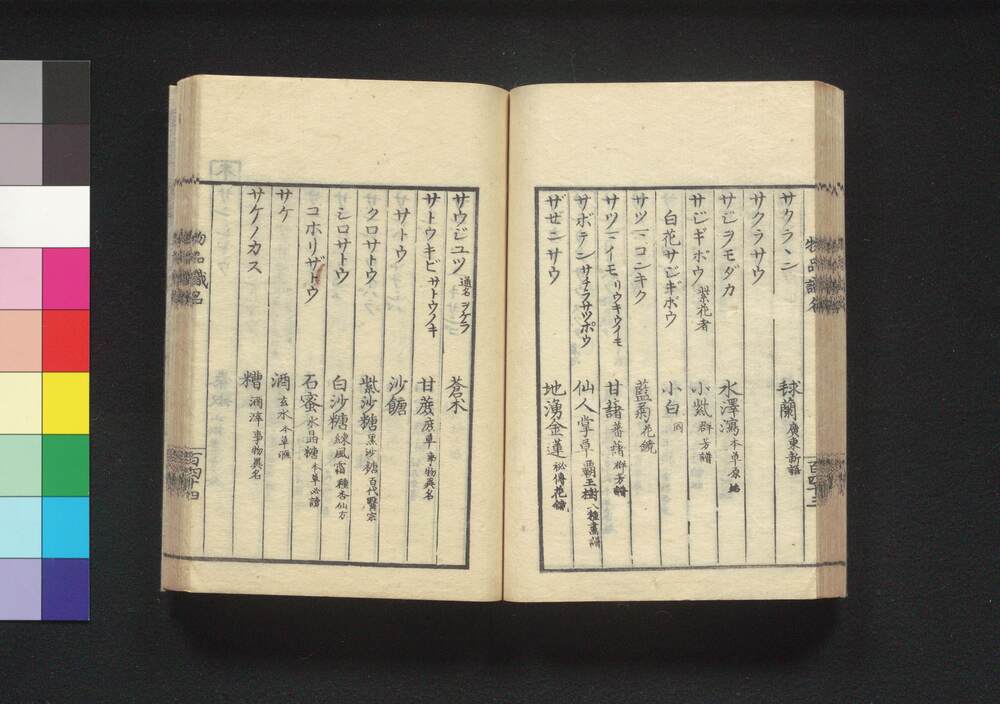 サクラン 毬蘭 廣東新語
サクラサウ
サジヲモダカ 水澤瀉 本草原始
サジギボウ 紫花者 小紫 群芳譜
白花サジギボウ 小白 同
サツマコンキク 藍菊 花鏡
サツマイモ リウキウイモ 甘藷 蕃藷 群芳譜
サボテン サチラサツポウ 仙人掌草 覇王樹 八種畫譜
ザゼンサウ 地湧金蓮 秘傳花鏡
百四十三
サウジユツ 通名 ヲケラ 蒼朮
サトウキビ サトウノキ 甘蔗 蔗草 事物異名
サトウ 沙餹
クロサトウ 紫沙糖 黒沙糖 百代醫宗
シロサトウ 白沙糖 練風霜 種杏仙方
コホリザトウ 石蜜 水晶糖 本草必讀
サケ 酒 玄水 本草匯
サケノカス 糟 酒滓 事物異名
物品識名
百四十四